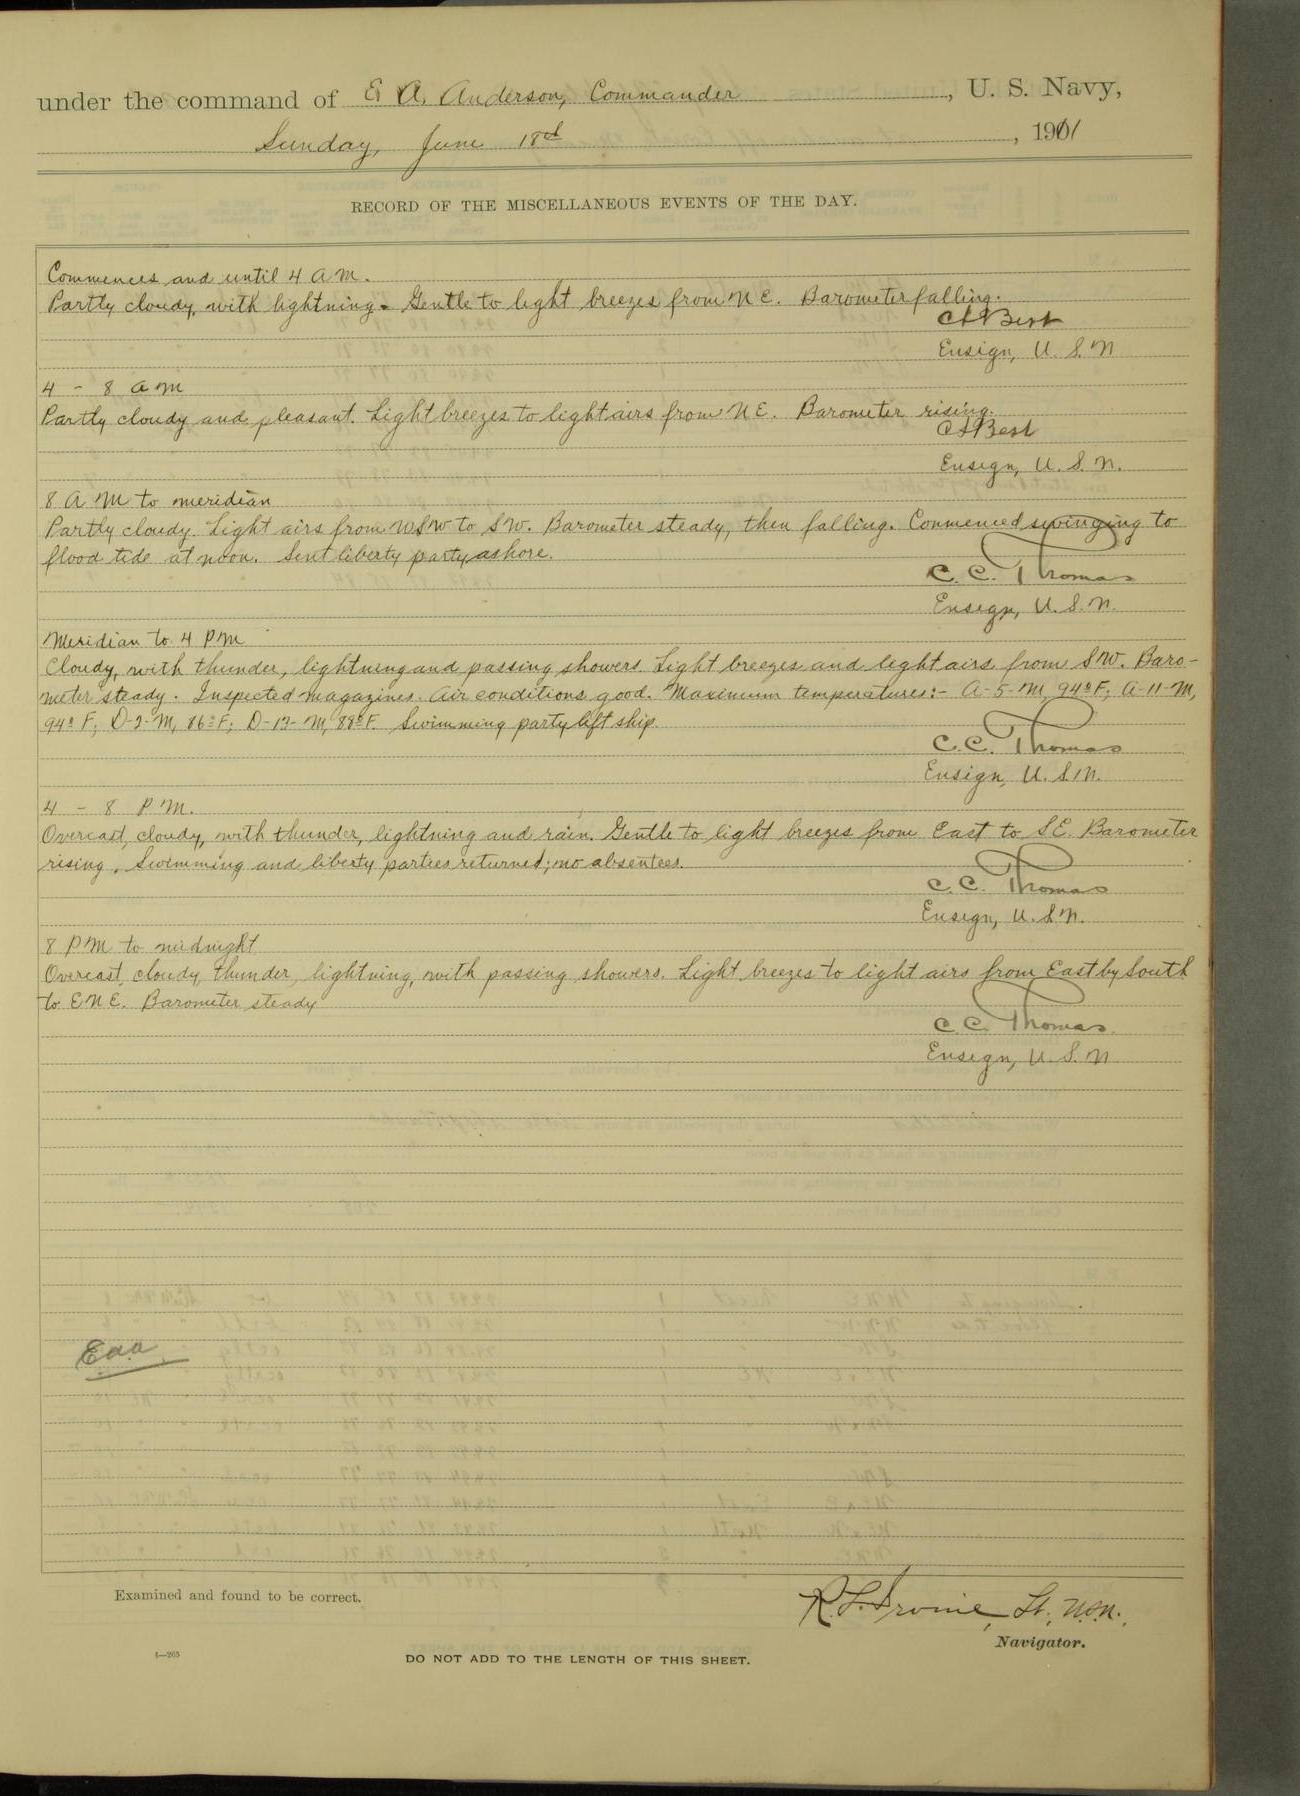 under the command of E. A. Anderson, Commander, U. S. Navy,
Sunday, June 18th, 1911
RECORD OF THE MISCELLANEOUS EVENTS OF THE DAY.
Commences and until 4 A M.
Partly cloudy, with lightning. Gentle to light breezes from N E. Barometer falling.
C L Best
Ensign, U. S. N
4 - 8 A M
Partly cloudy and pleasant. Light breezes to light airs from N E. Barometer rising.
C L Best
Ensign, U. S. N.
8 A M to meridian
Partly cloudy. Light airs from WSW to SW. Barometer steady, then falling. Commenced swinging to
flood tide at noon. Sent liberty party ashore.
C. C. Thomas
Ensign, U. S. N.
Meridian to 4 P M
Cloudy, with thunder, lightning and passing showers. Light breezes and light airs from SW. Baro-
meter steady. Inspected magazines. Air conditions good. Maximum temperatures:- A-5-M, 94° F; A-11-M,
94° F; D-2-M, 86° F; D-13-M, 88° F. Swimming party left ship.
C. C. Thomas
Ensign, U. S. N.
4 - 8 P M.
Overcast, cloudy, with thunder, lightning and rain. Gentle to light breezes from East to SE. Barometer
rising. Swimming and liberty parties returned; no absentees.
C. C. Thomas
Ensign, U. S. N.
8 P M to midnight
Overcast, cloudy, thunder, lightning, with passing showers. Light breezes to light airs from East by South
to E N E. Barometer steady
C C Thomas
Ensign, U. S. N
Eaa
Examined and found to be correct.
R. L. Irvine, Lt., U.S.N.,
Navigator.
4—265
DO NOT ADD TO THE LENGTH OF THIS SHEET.